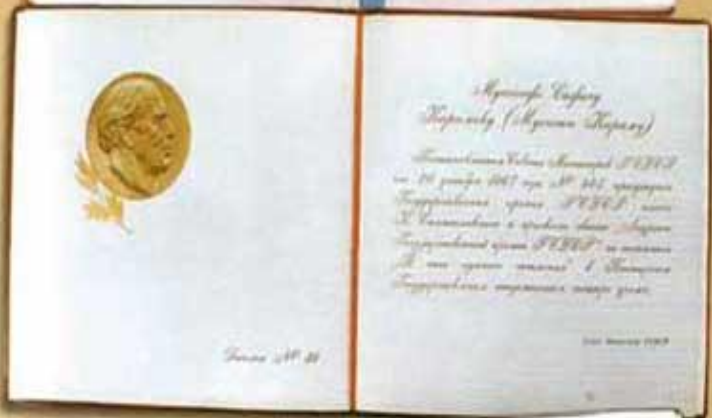 Диплом № 
Мустафе Сафичу
Каримову (Мустаю Кариму)
Постановлением Совета Министров РСФСР
от декабря 1967 года № присуждена
Государственная премия РСФСР имени
К. Станиславского и присвоено звание "Лауреат
Государственной премии РСФСР" за
"В ночь лунного затмения" в Башкирском
Государственном академическом театре драмы.
Совет Министров РСФСР